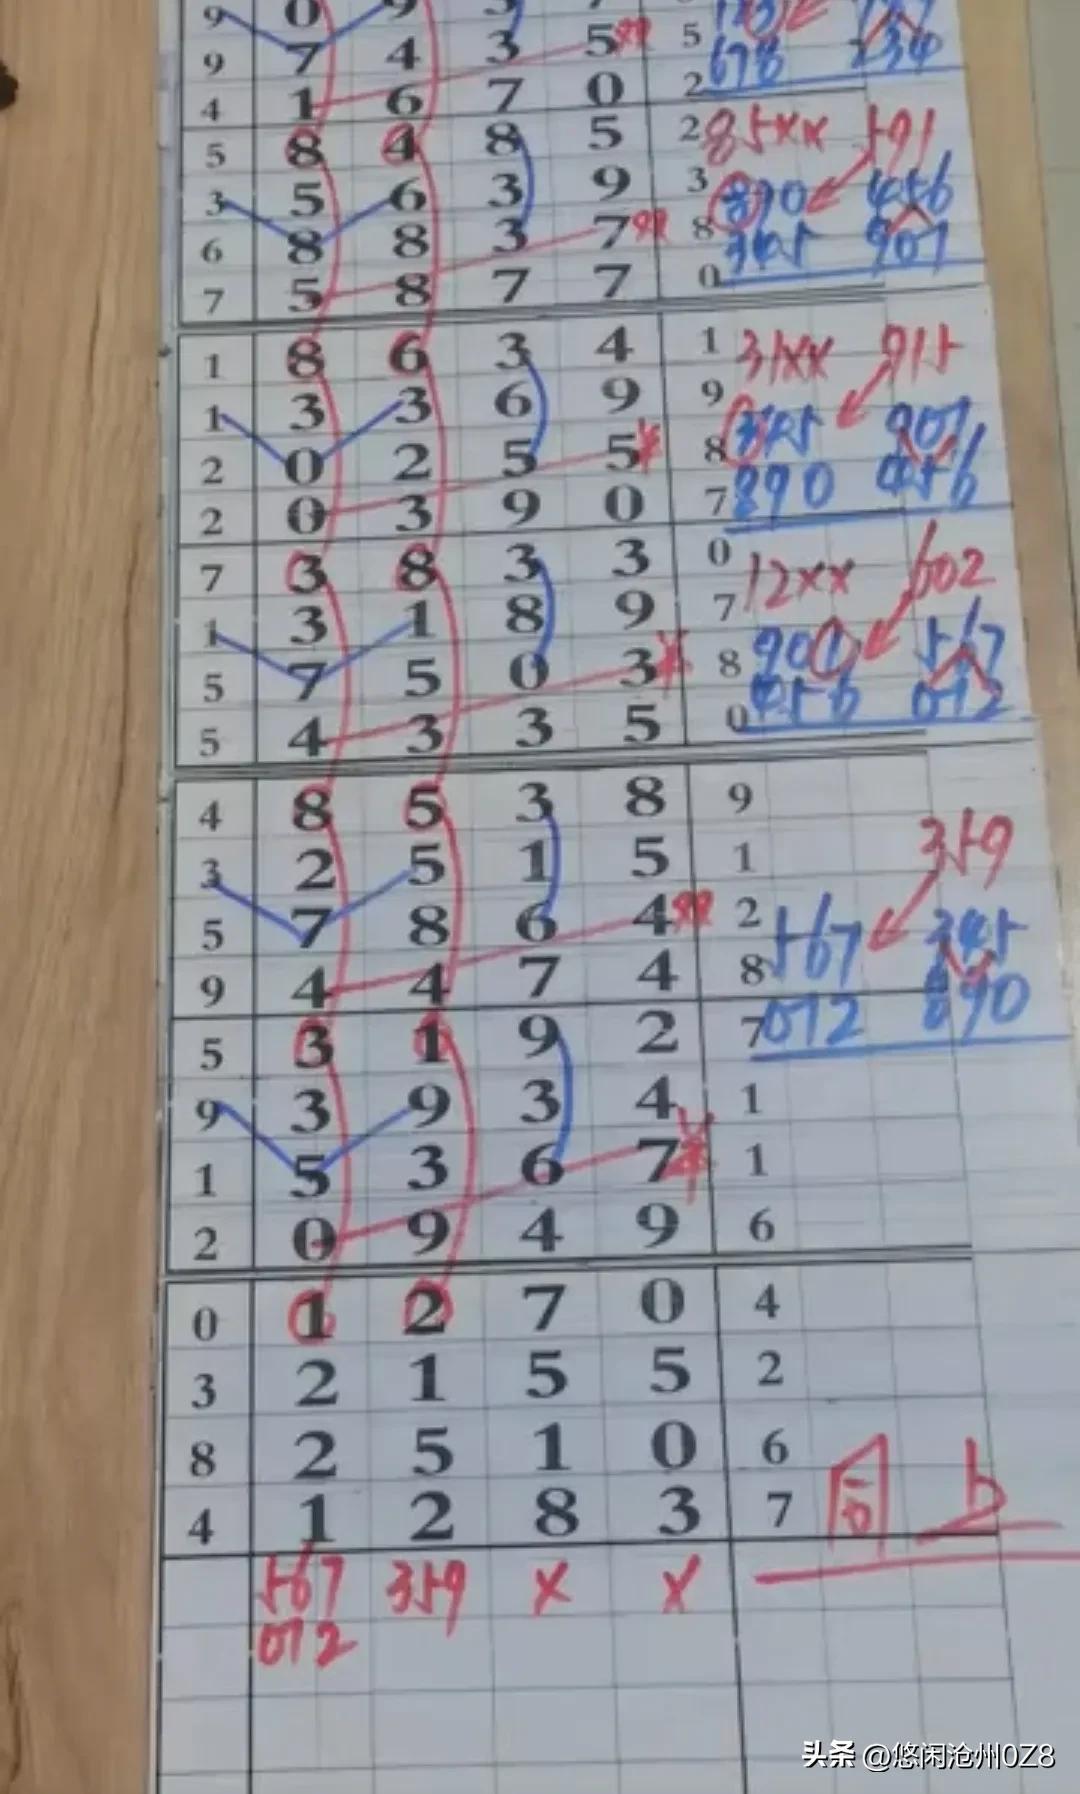 9 0 9 3 7
9 7 4 3 5 5 678 234
4 1 6 7 0 2
5 8 4 8 5 2 85xx 591
3 5 6 3 9 3 890 456
6 8 8 3 7 8 345 901
7 5 8 7 7 0
1 8 6 3 4 1 31xx 915
1 3 3 6 9 9
2 0 2 5 5 8 345 901
2 0 3 9 0 7 890 456
7 3 8 3 3 0 12xx 602
1 3 1 8 9 7
5 7 5 0 3 8 901 567
5 4 3 3 5 0 456 012
4 8 5 3 8 9
3 2 5 1 5 1 359
5 7 8 6 4 2 567 345
9 4 4 7 4 8
5 3 1 9 2 7 012 890
9 3 9 3 4 1
1 5 3 6 7 1
2 0 9 4 9 6
0 1 2 7 0 4
3 2 1 5 5 2
8 2 5 1 0 6
4 1 2 8 3 7
567 359 x x
012
头条 @悠闲沧州0Z8